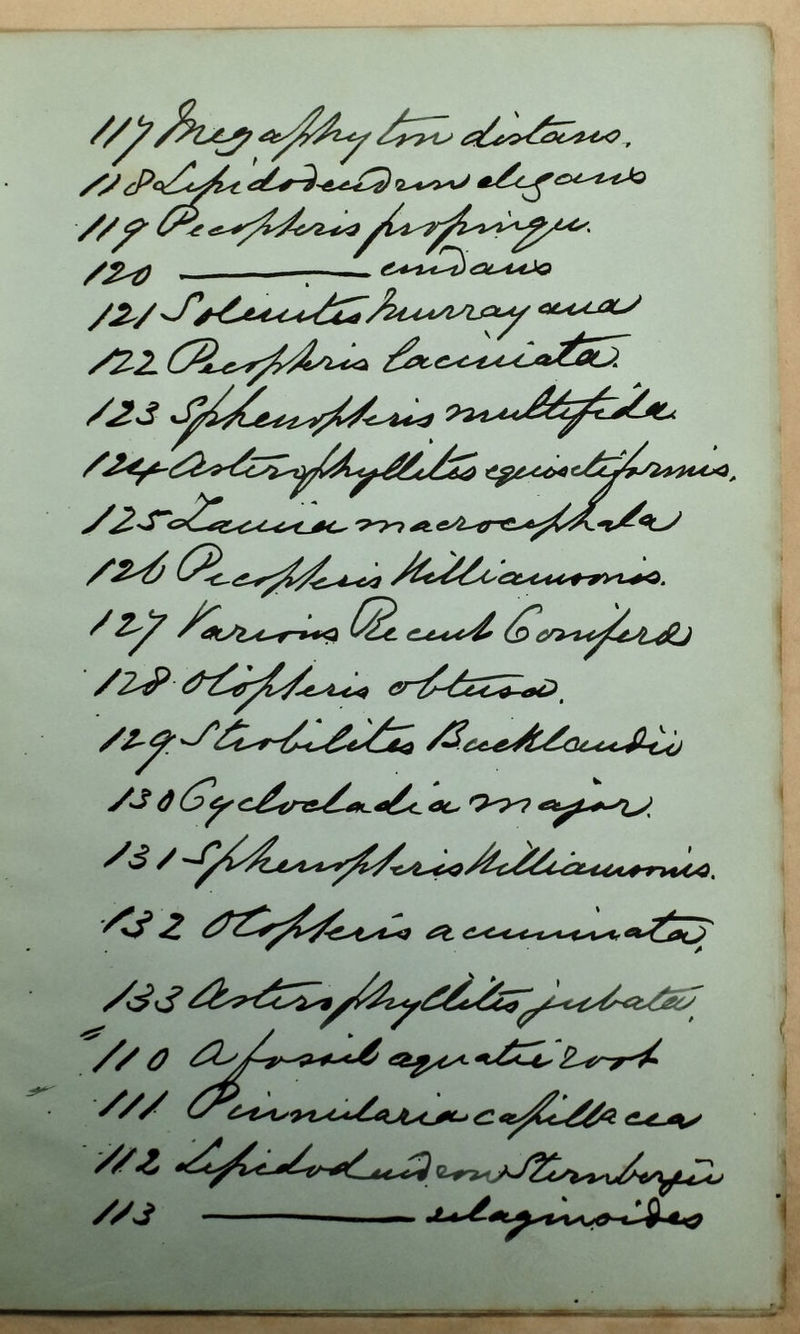 117 Megaphyton distans.
118 Lepidodendrum elegans
119 Pecopteris propinqu.
120 ———
121 Solenites Murrayana
122 Pecopteris laciniata.
123 Sphenopteris multifida
124 Asterophyllites equisetiformis.
125 Zamia macrocephala
126 Pecopteris Williamsonis.
127 Various Recent Coniferæ
128 Otopteris obtusa.
129 Strobilites Bucklandii
130 Cyclocladia major.
131 Sphenopteris Williamsonis.
132 Otopteris acuminata,
133 Asterophyllites jubata,
110 A fossil aquatic root
111 Pinnularia capillacea
112 Lepidodendron Sternbergii
113 ——— selaginoides